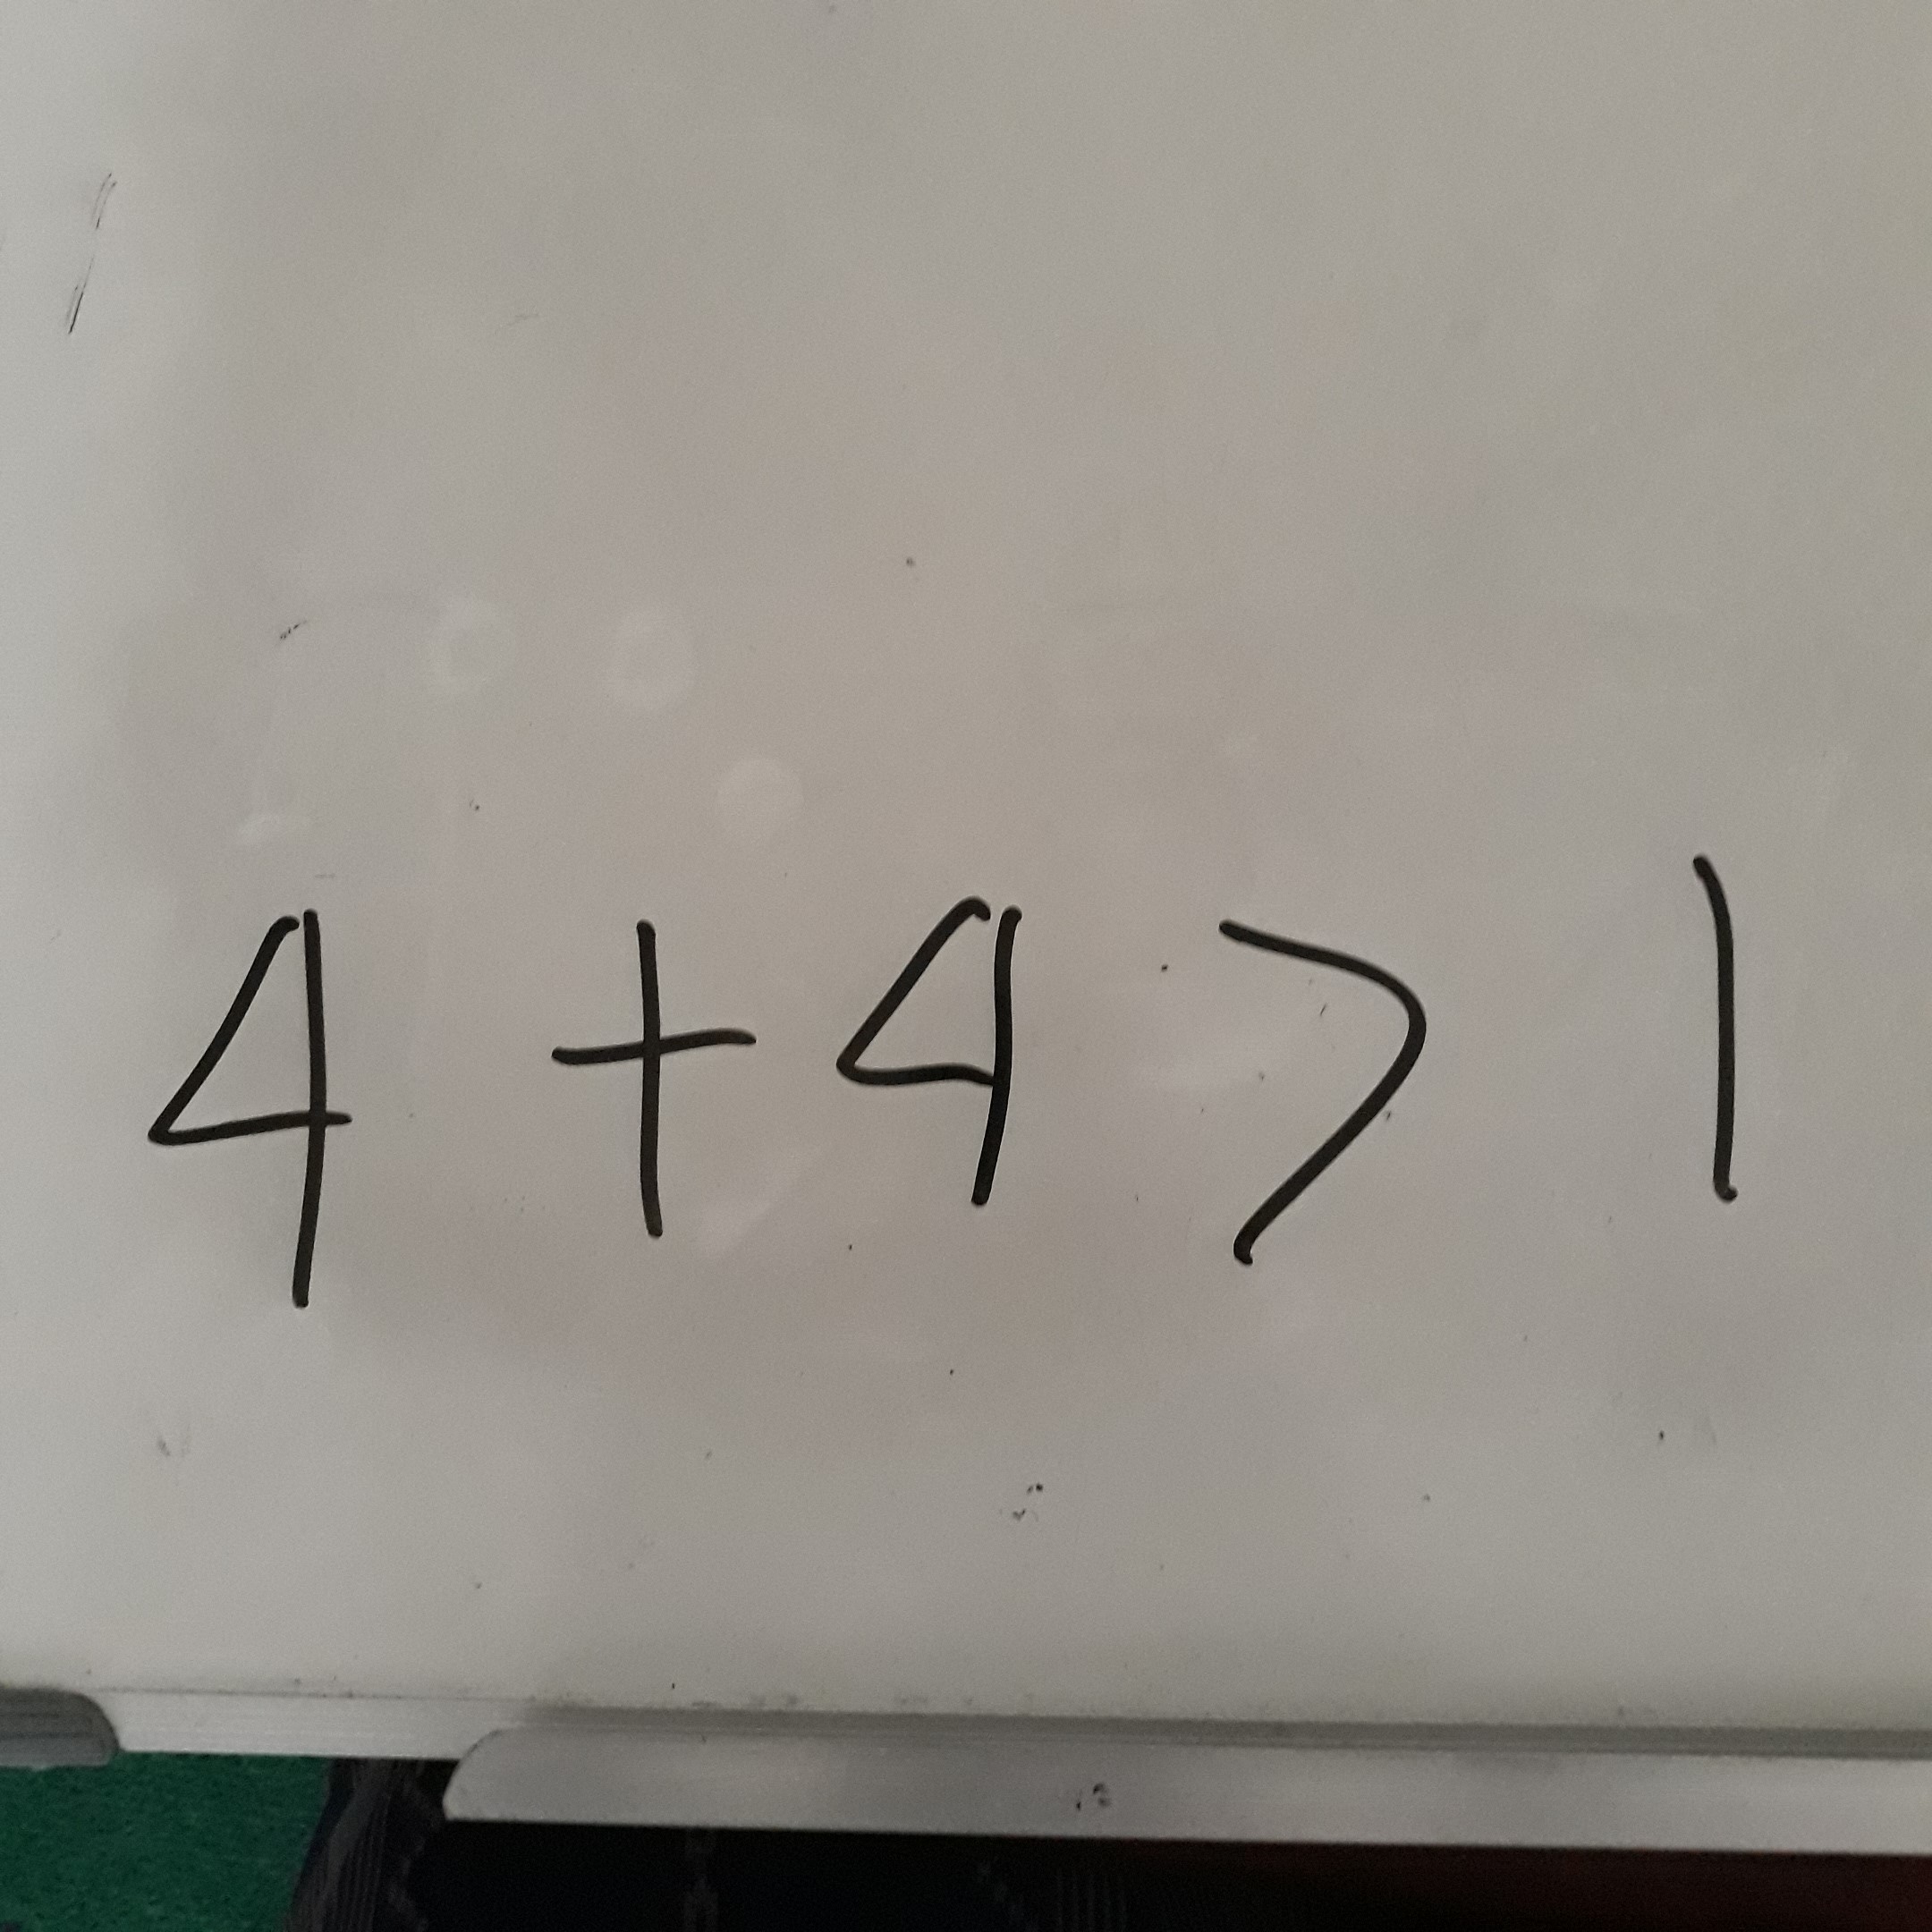 4 + 4 > 1